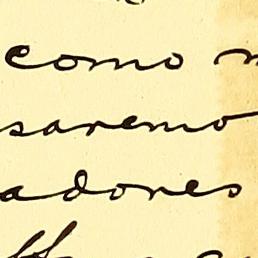 como
saremo
adores